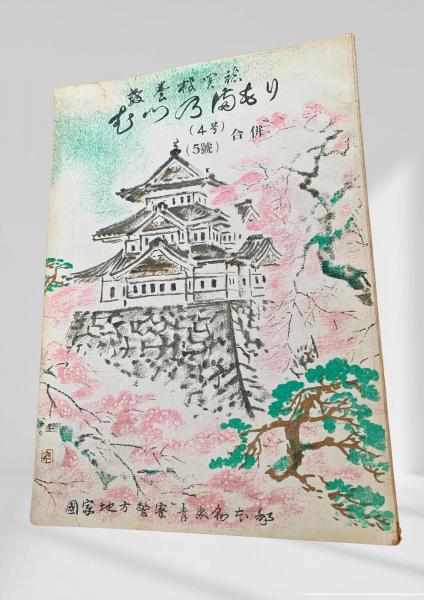 教養機関誌
むつ乃満もり
(4号)
(5號) 合併
國家地方警察青森縣本部